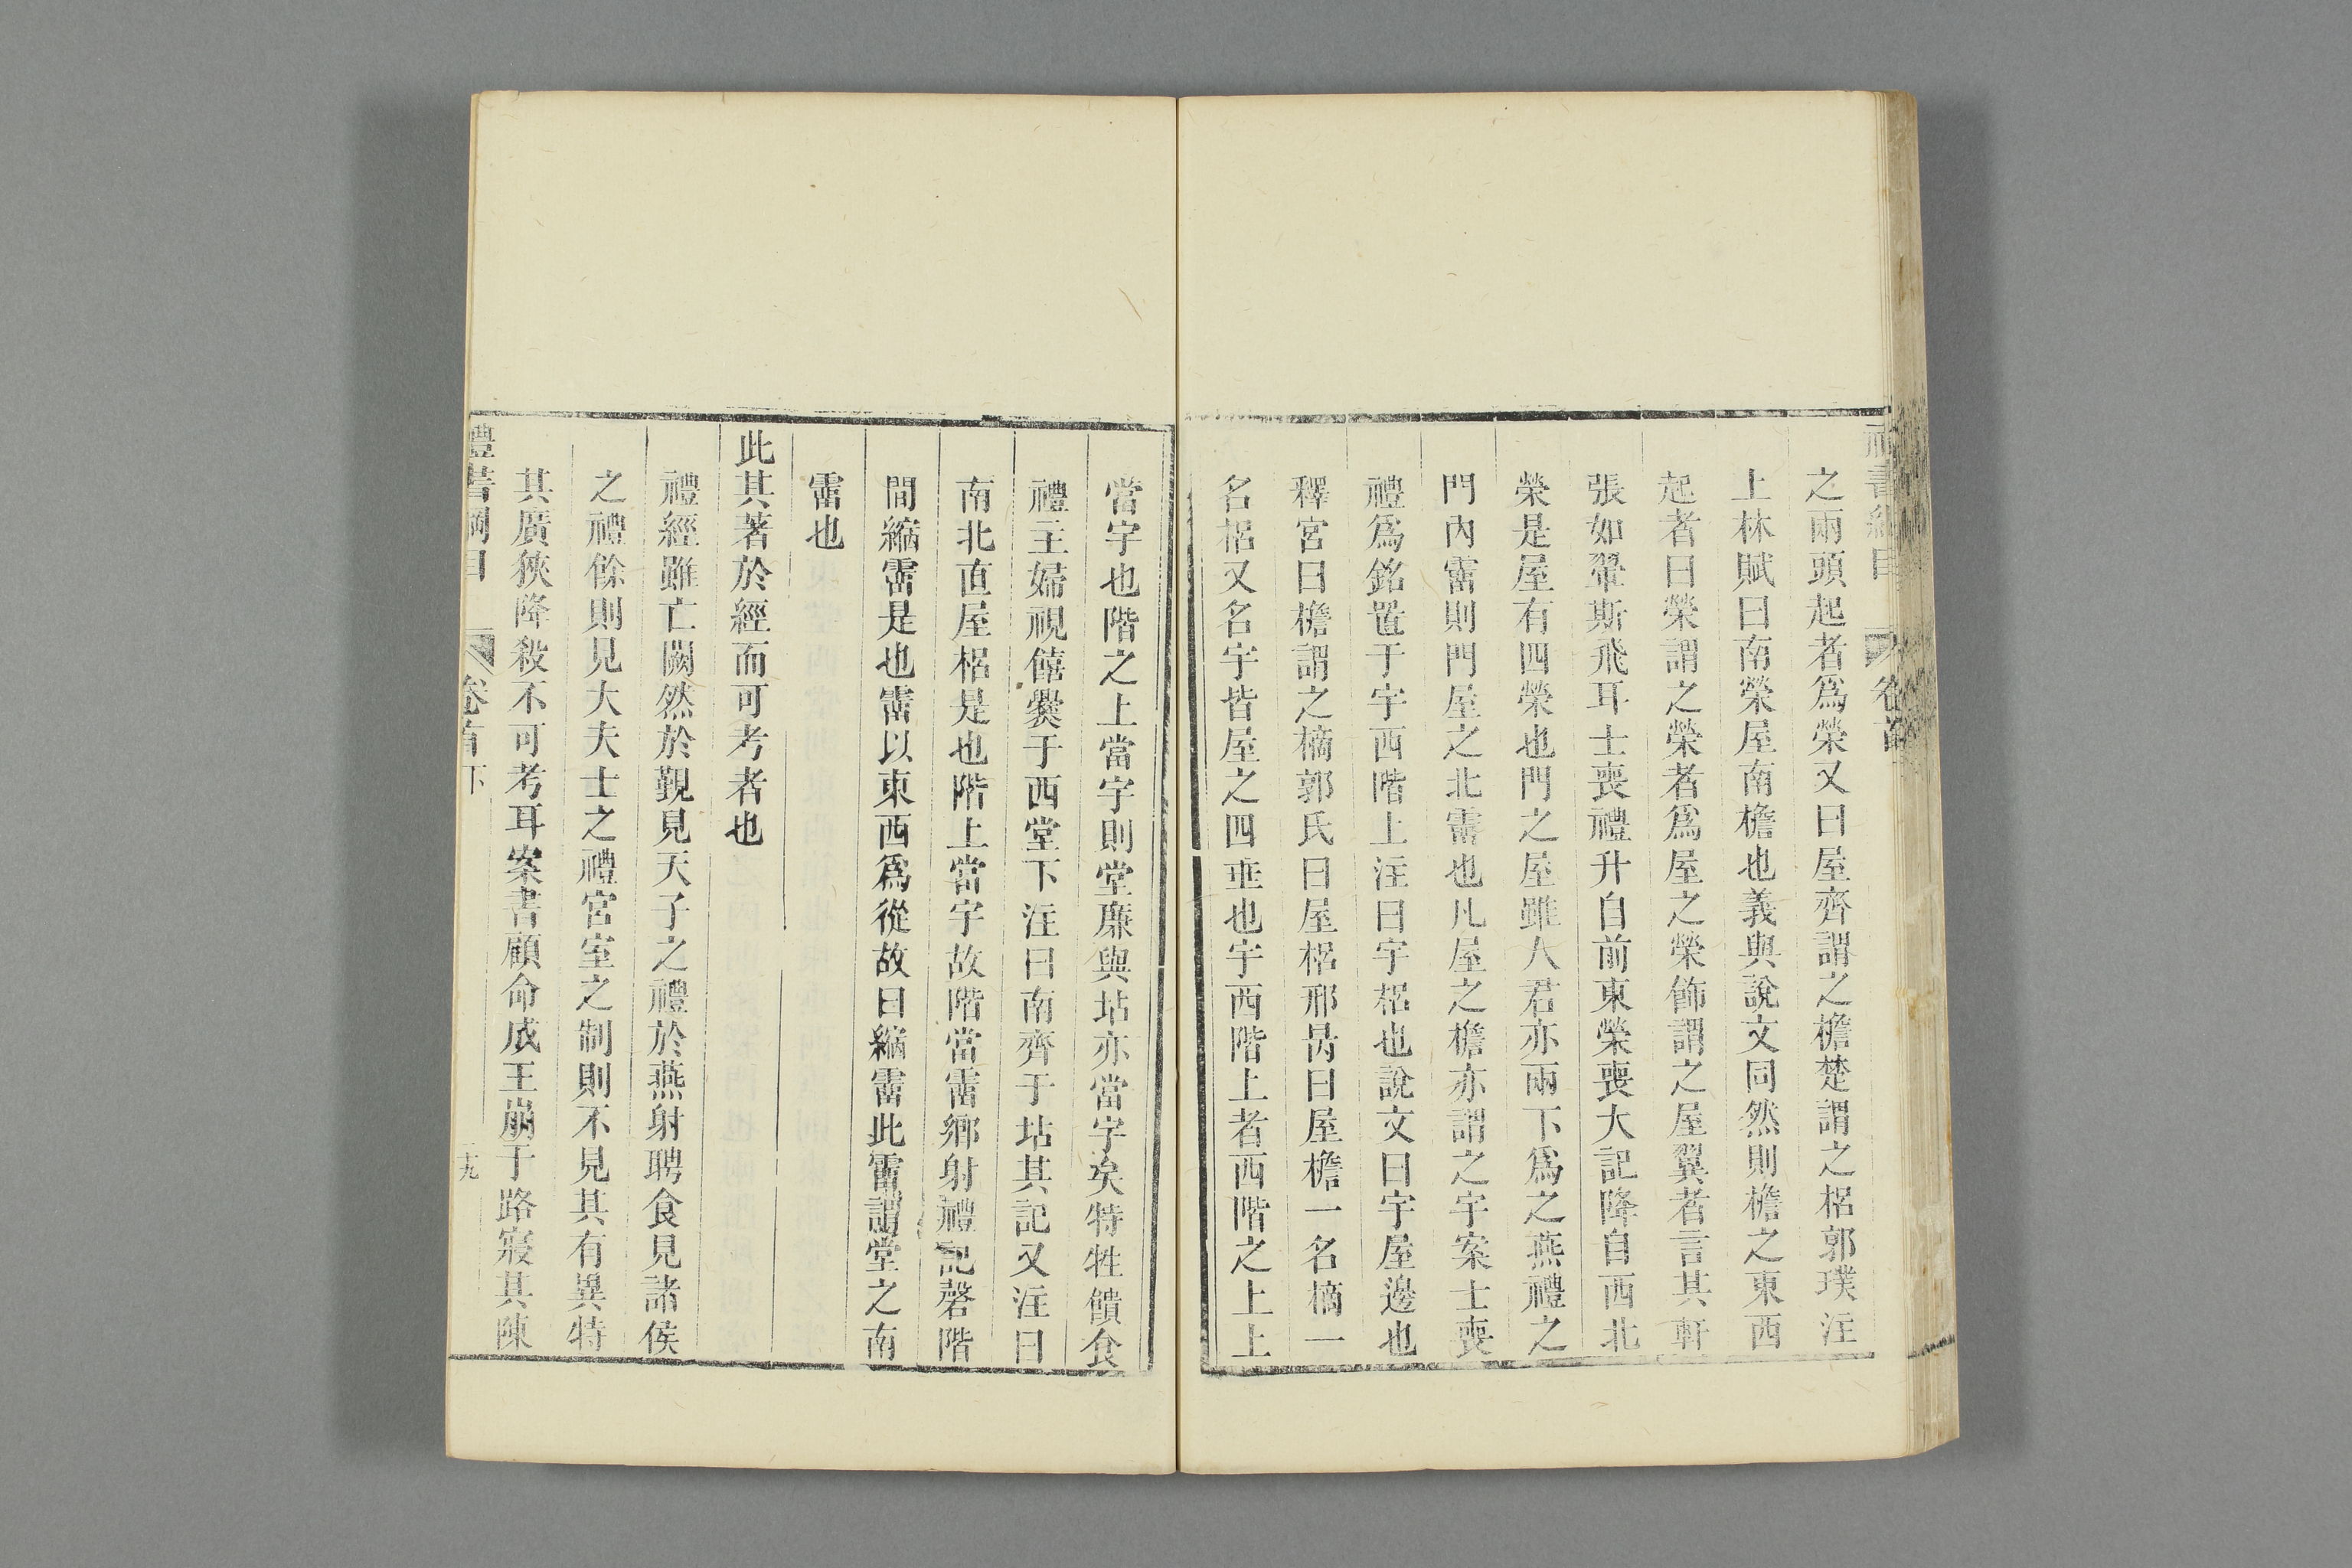 之兩頭起者爲榮又曰屋齊謂之檐楚謂之梠郭璞注
上林賦曰南榮屋南檐也義與說文同然則檐之東西
起者曰榮謂之榮者爲屋之榮飾謂之屋翼者言其軒
張如翬斯飛耳士喪禮升自前東榮喪大記降自西北
榮是屋有四榮也門之屋雖人君亦兩下爲之燕禮之
門內霤則門屋之北霤也凡屋之檐亦謂之宇案士喪
禮爲銘置于宇西階上注曰宇梠也說文曰宇屋邊也
釋宮曰檐謂之樀郭氏曰屋梠邢昺曰屋檐一名樀一
名梠又名宇皆屋之四垂也宇西階上者西階之上上
當宇也階之上當宇則堂廉與坫亦當宇矣特牲饋食
禮主婦視饎爨于西堂下注曰南齊于坫其記又注曰
南北直屋梠是也階上當宇故階當霤鄉射禮記磬階
間縮霤是也霤以東西爲從故曰縮霤此霤謂堂之南
霤也
此其著於經而可考者也
禮經雖亡闕然於覲見天子之禮於燕射聘食見諸侯
之禮餘則見大夫士之禮宮室之制則不見其有異特
其廣狹降殺不可考耳案書顧命成王崩于路寢其陳
禮書綱目
卷首下